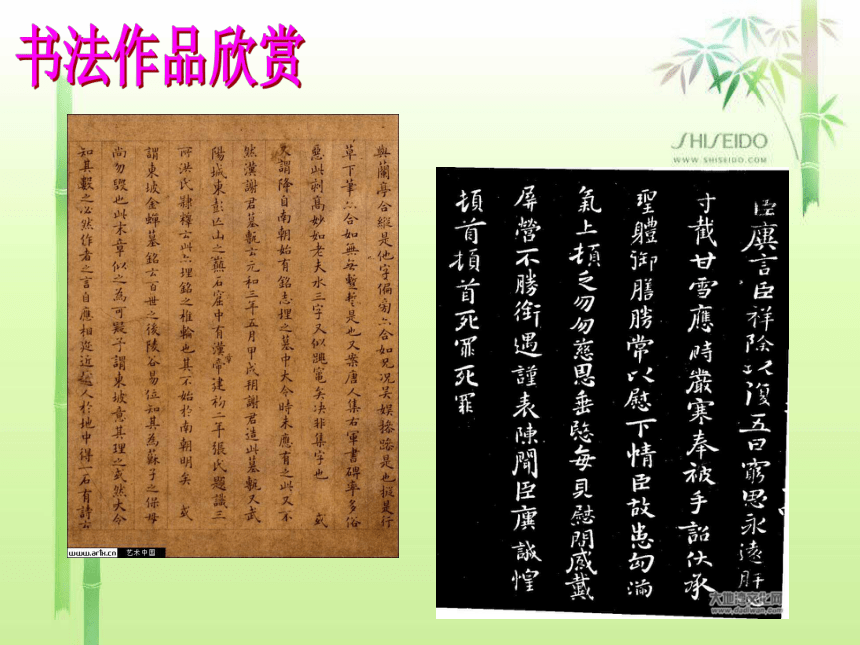 书法作品欣赏
SHISEIDO
WWW.SHISEIDO.COM
與蘭亭合縱是他字偏旁六合如兄况吳娱是也縱是行
草下筆六合如無每蹔是也又案唐人集右軍書碑率多俗
惡此刻高妙如老夫水三字又似矣决非集字也 或
又謂降自南朝始有銘志埋之墓中大令時未應有之此又不
然漢謝君墓甎云元和三年五月甲戌朔謝君造此墓甎又武
陽城東彭亡山之巔石窟中有漢章帝建初二年張氏題識三
所洪氏隸釋云此六埋銘之椎輪也其不始於南朝明矣 或
謂東坡金蟬墓銘云百世之後陵谷易位知其為蘇子之保母
尚勿毀也此末章似之為可疑予謂東坡意其理之或然大令
知其數之必然作者之言自應相近人於地中得一石有詩云
www.artx.cn 艺术中国
臣廙言臣祥除以復五日窮思永遠肝
寸截甘雪應時嚴寒奉被手詔伏承
聖體御膳勝常以慰下情臣故患匈滿
氣上頓乏勿勿慈恩垂愍每見慰問感戴
屏營不勝銜遇謹表陳聞臣廙誠惶
頓首頓首死罪死罪
大地湾文化网
www.dadiwan.com